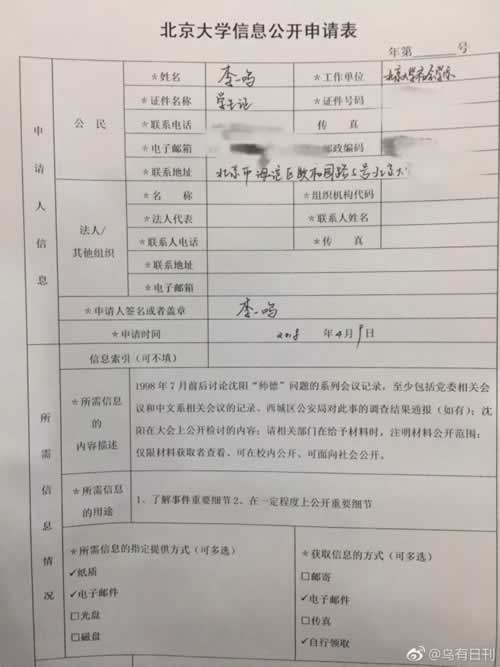 北京大学信息公开申请表
年第 号
申请人信息
公民
*姓名 李一鸣 *工作单位 北京大学社会学系
*证件名称 学生证 *证件号码
*联系电话 传 真
*电子邮箱 邮政编码
*联系地址 北京市海淀区颐和园路5号北京大
法人/其他组织
*名 称 *组织机构代码
*法人代表 *联系人姓名
*联系人电话 *传 真
*联系地址
*电子邮箱
*申请人签名或者盖章 李一鸣
*申请时间 2018 年4月9日
所需信息情况
信息索引(可不填)
*所需信息的内容描述
1998年7月前后讨论沈阳“师德”问题的系列会议记录,至少包括党委相关会
议和中文系相关会议的记录、西城区公安局对此事的调查结果通报(如有);沈
阳在大会上公开检讨的内容;请相关部门在给予材料时,注明材料公开范围:
仅限材料获取者查看、可在校内公开、可面向社会公开。
*所需信息的用途
1、了解事件重要细节2、在一定程度上公开重要细节
*所需信息的指定提供方式(可多选)
✓纸质
✓电子邮件
□光盘
□磁盘
*获取信息的方式(可多选)
□邮寄
✓电子邮件
□传真
✓自行领取
@乌有日刊